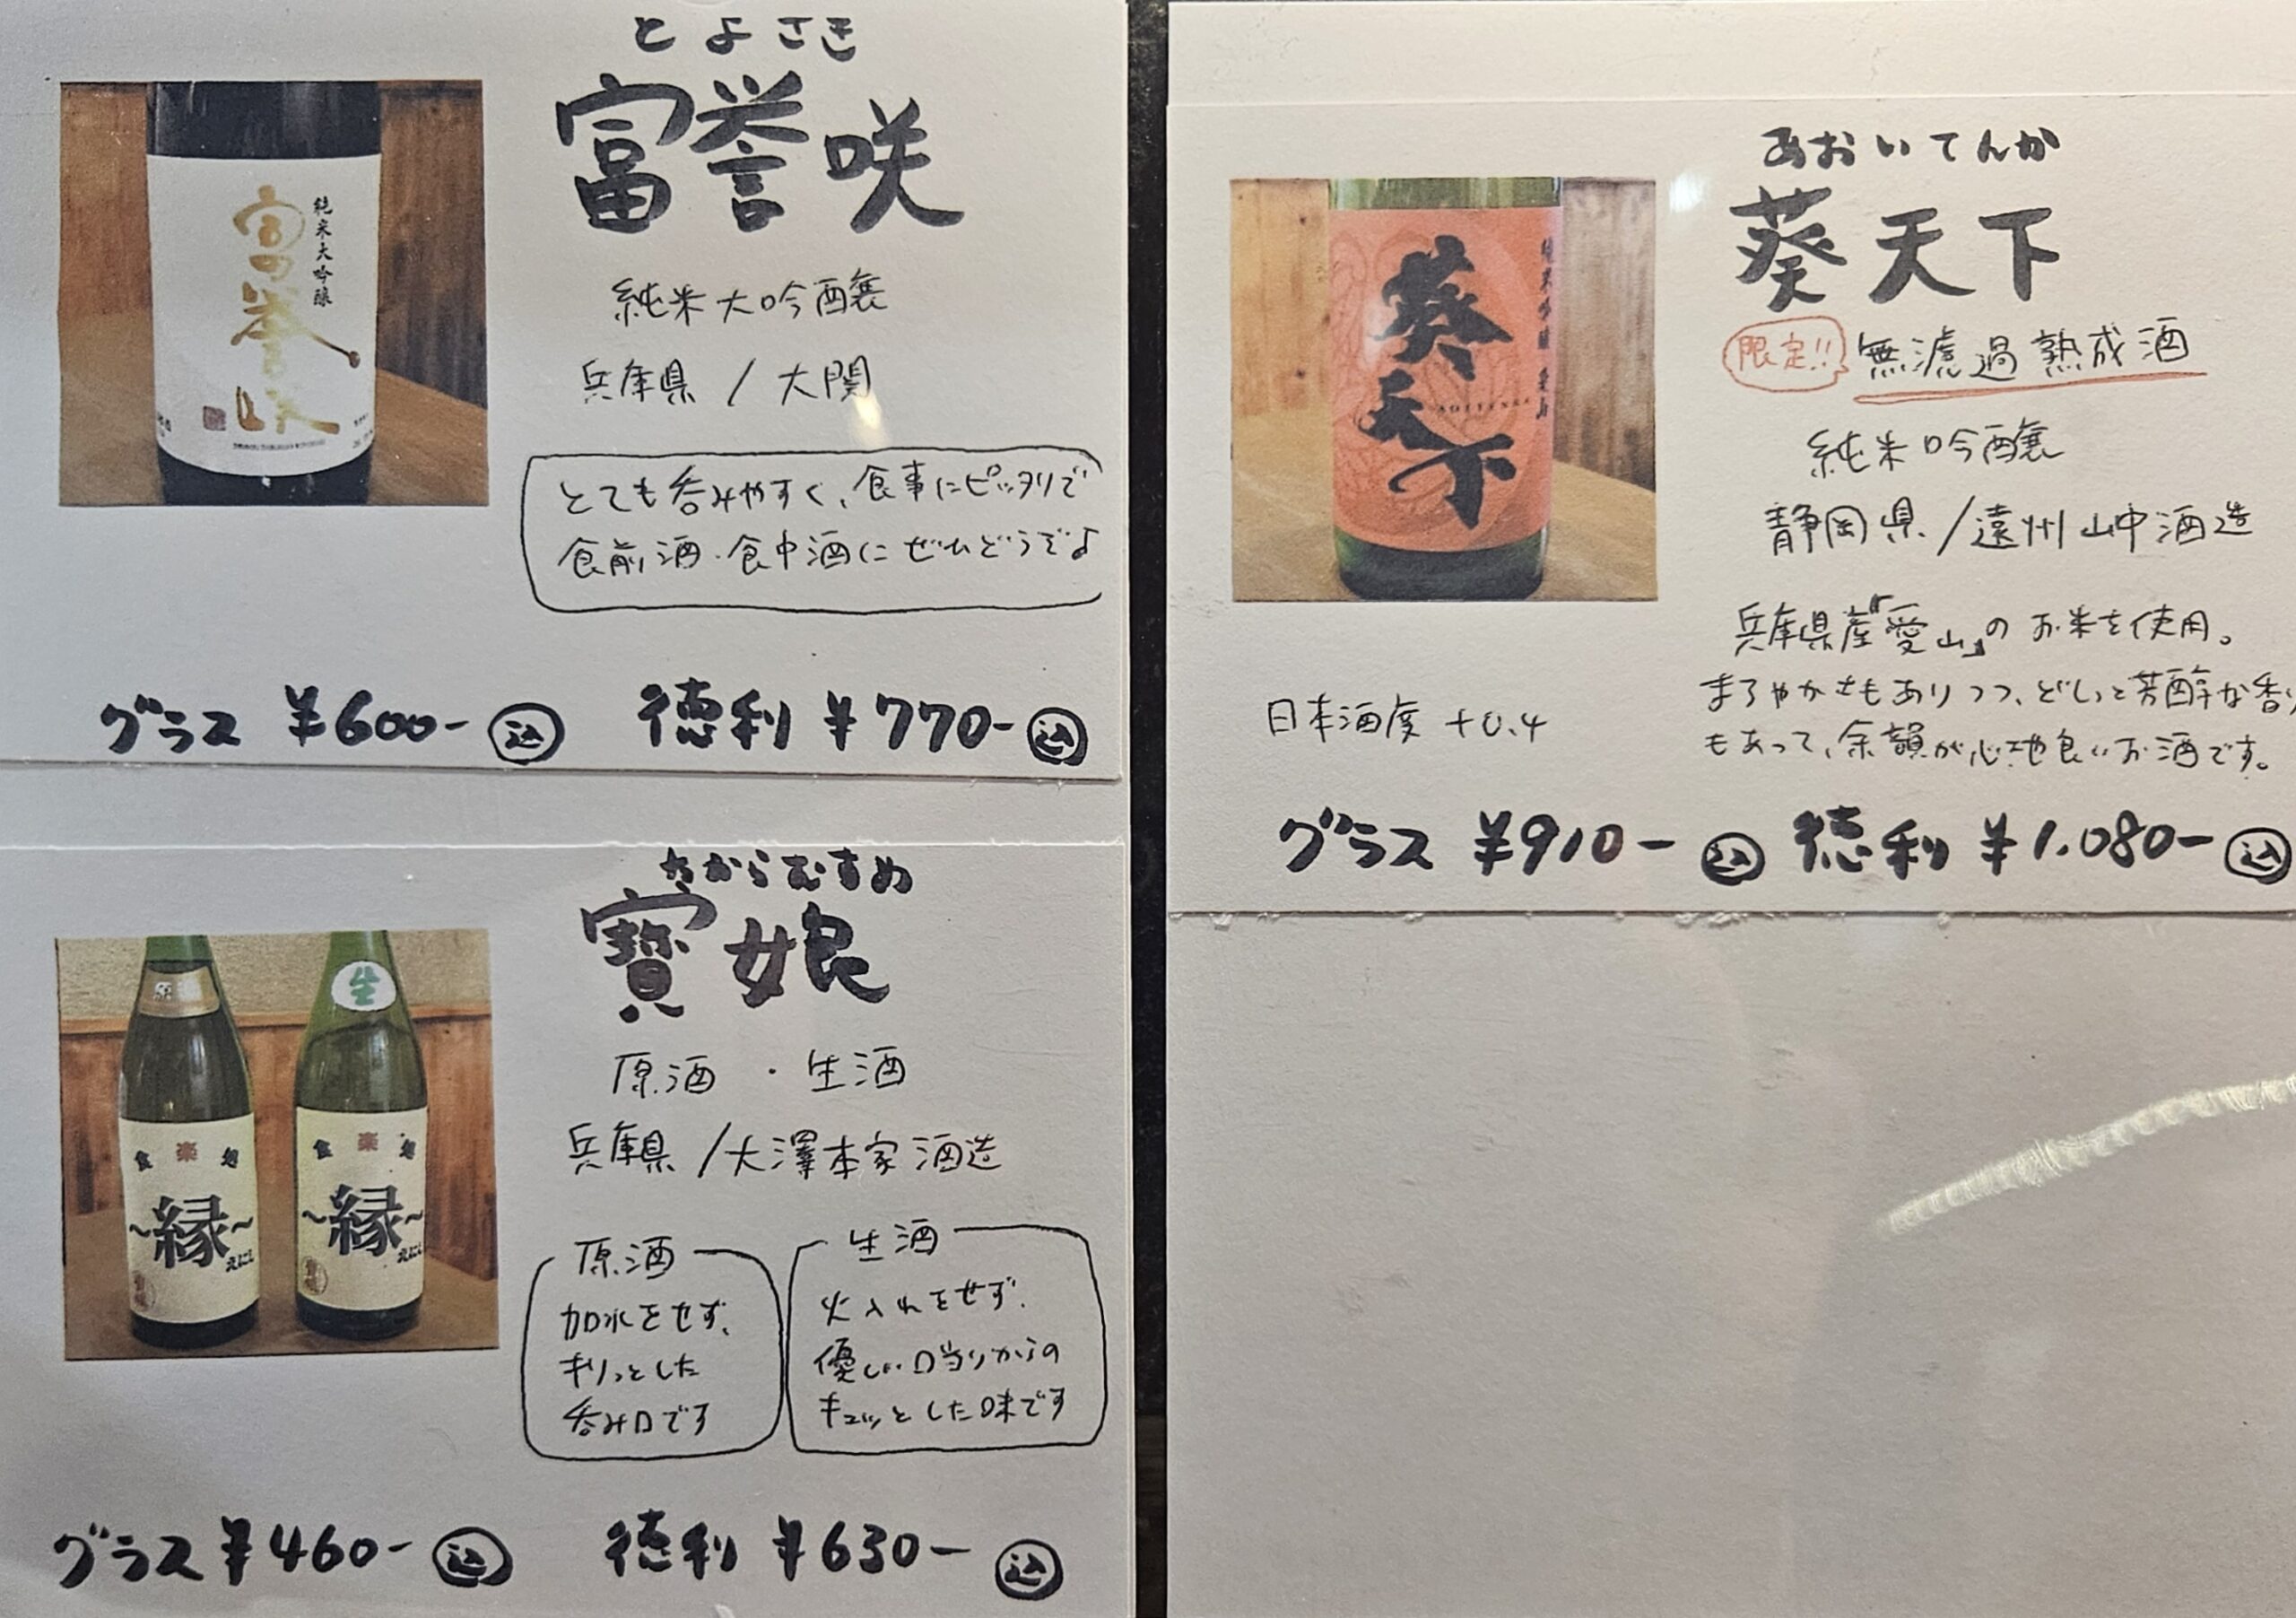 とよさき
富誉咲
純米大吟醸
兵庫県 / 大関
とても呑みやすく、食事にピッタリで
食前酒・食中酒にぜひどうぞよ
グラス ¥600- 込 徳利 ¥770- 込
純米大吟醸
富誉咲
たからむすめ
寶娘
原酒 ・ 生酒
兵庫県 / 大澤本家酒造
原酒
加水をせず、
キリっとした
呑み口です
生酒
火入れをせず、
優しい口当りからの
キュッとした味です
グラス ¥460- 込 徳利 ¥630- 込
食楽処
~縁~
えにし
生
食楽処
~縁~
えにし
あおいてんか
葵天下
限定!! 無濾過熟成酒
純米吟醸
静岡県 / 遠州山中酒造
兵庫県産「愛山」のお米を使用。
まろやかさもありつつ、どしっと芳醇な香り
もあって、余韻が心地良いお酒です。
日本酒度 +0.4
グラス ¥910- 込 徳利 ¥1,080- 込
葵天下
AOITENKA
純米吟醸 愛山